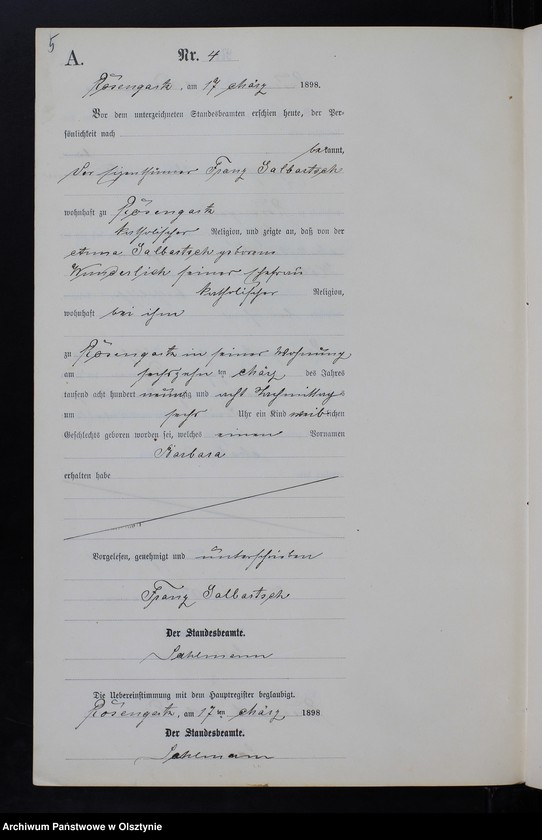 5
A.
Nr. 4
Rosengarth, am 17 März 1898.
Vor dem unterzeichneten Standesbeamten erschien heute, der Per-
sönlichkeit nach
bekannt,
der Eigenthümer Franz Salbartsch
wohnhaft zu Rosengarth
katholischer Religion, und zeigte an, daß von der
Anna Salbartsch geborene
Wunderlich seiner Ehefrau
katholischer Religion,
wohnhaft bei ihm
zu Rosengarth in seiner Wohnung
am sechszehn ten März des Jahres
tausend acht hundert neunzig und acht Nachmittags
um sechs Uhr ein Kind weiblichen
Geschlechts geboren worden sei, welches einen Vornamen
Barbara
erhalten habe
Vorgelesen, genehmigt und unterschrieben
Franz Salbartsch
Der Standesbeamte.
Dahlmann
Die Uebereinstimmung mit dem Hauptregister beglaubigt.
Rosengarth, am 17 ten März 1898
Der Standesbeamte.
Dahlmann
Archiwum Państwowe w Olsztynie